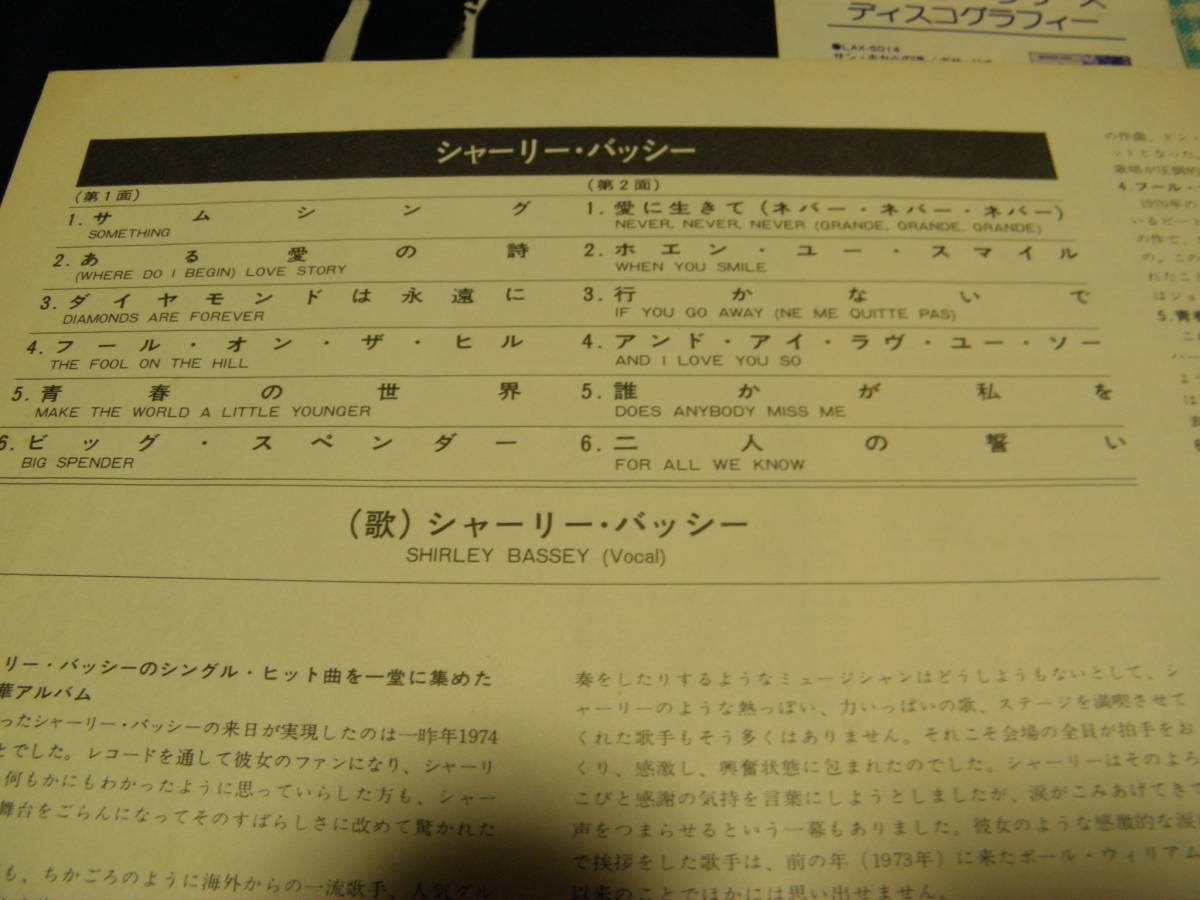 ディスコグラフィー
●LAX-5014
シャーリー・バッシー
(第1面)
1. サムシング
SOMETHING
2. ある愛の詩
(WHERE DO I BEGIN) LOVE STORY
3. ダイヤモンドは永遠に
DIAMONDS ARE FOREVER
4. フール・オン・ザ・ヒル
THE FOOL ON THE HILL
5. 青春の世界
MAKE THE WORLD A LITTLE YOUNGER
6. ビッグ・スペンダー
BIG SPENDER
(第2面)
1. 愛に生きて(ネバー・ネバー・ネバー)
NEVER, NEVER, NEVER (GRANDE, GRANDE, GRANDE)
2. ホエン・ユー・スマイル
WHEN YOU SMILE
3. 行かないで
IF YOU GO AWAY (NE ME QUITTE PAS)
4. アンド・アイ・ラヴ・ユー・ソー
AND I LOVE YOU SO
5. 誰かが私を
DOES ANYBODY MISS ME
6. 二人の誓い
FOR ALL WE KNOW
(歌) シャーリー・バッシー
SHIRLEY BASSEY (Vocal)
リー・バッシーのシングル・ヒット曲を一堂に集めた
華アルバム
ったシャーリー・バッシーの来日が実現したのは一昨年1974
とでした。レコードを通して彼女のファンになり、シャーリ
何もかにもわかったように思っていらした方も、シャー
舞台をごらんになってそのすばらしさに改めて驚かれた
も、ちかごろのように海外からの一流歌手、人気グル
奏をしたりするようなミュージシャンはどうしようもないとして、シ
ャーリーのような熱っぽい、力いっぱいの歌、ステージを満喫させて
くれた歌手もそう多くはありません。それこそ会場の全員が拍手をお
くり、感激し、興奮状態に包まれたのでした。シャーリーはそのよろ
こびと感謝の気持を言葉にしようとしましたが、涙がこみあげてきて
声をつまらせるという一幕もありました。彼女のような感激的な涙
で挨拶をした歌手は、前の年(1973年)に来たポール・ウィリアム
以来のことでほかには思い出せません。
の作曲、ドン・
ットとなった
歌唱が圧倒的
4. フール・
1970年の
いるビート
の作で、
の。この
れたこ
はジョ
5. 青春